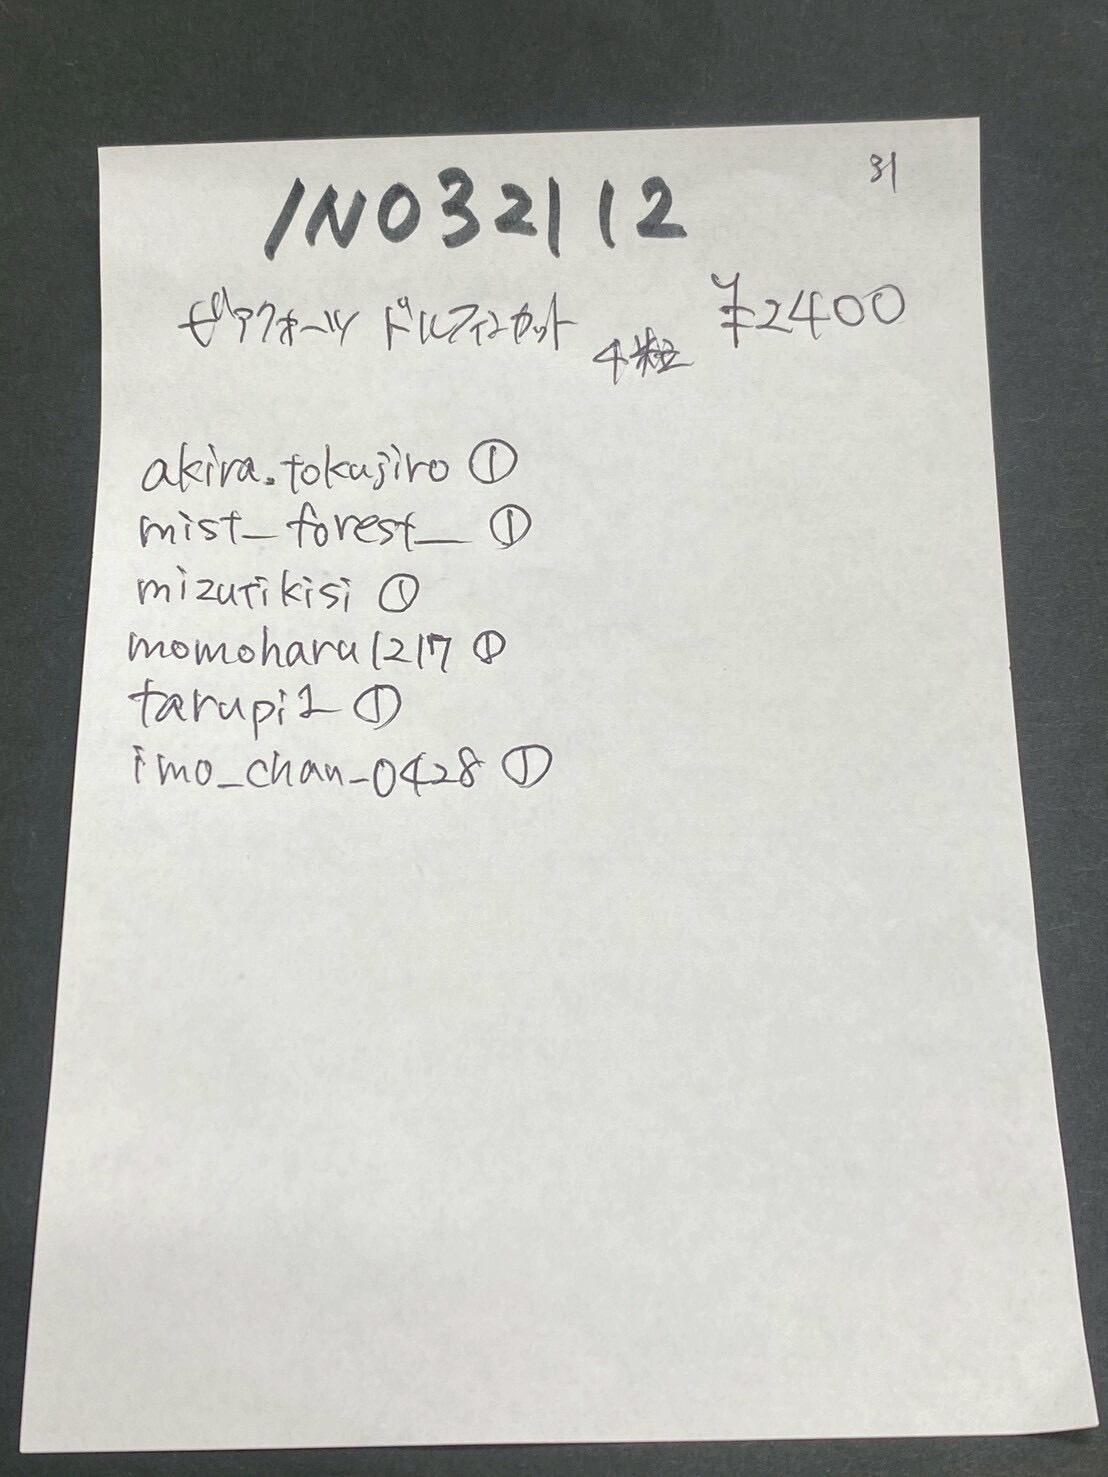 31
INO32112
ゼアクォーツ ドルフィンカット 4粒 ¥2400
akira.tokujiro ①
mist_forest_ ①
mizutikisi ①
momoharu1217 ①
tarupi1 ①
imo_chan_0428 ①